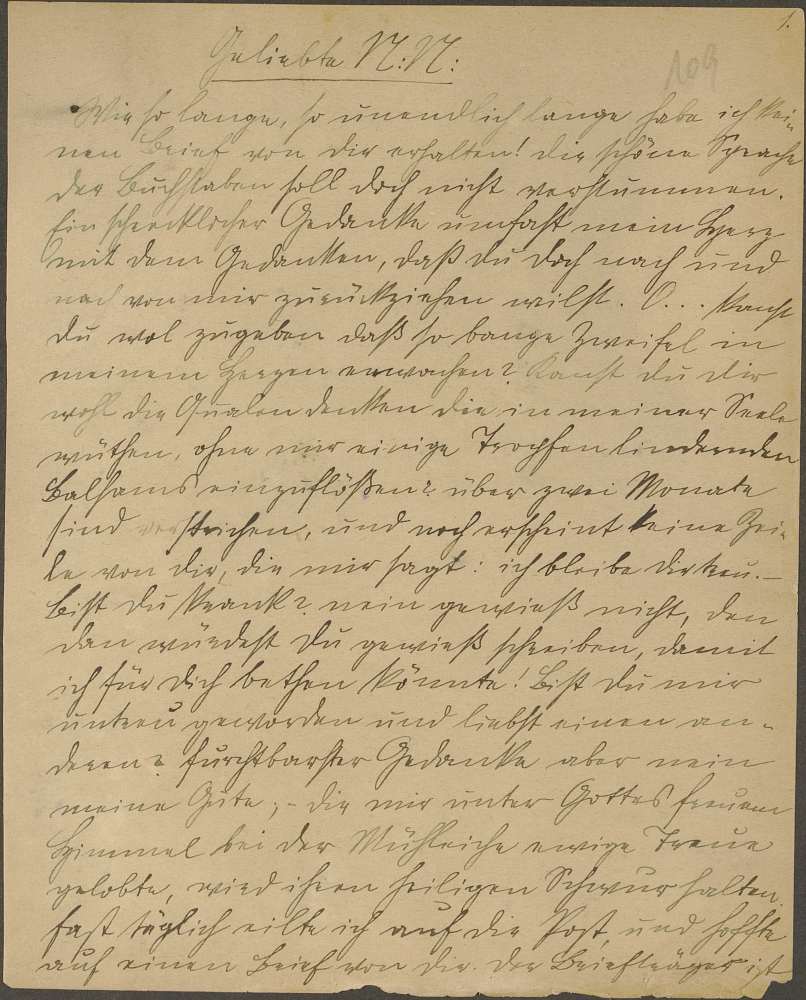 1.
109
Geliebte N:N:
Wie so lange, so unendlich lange habe ich kei-
nen Brief von dir erhalten! die schöne Sprache
der Buchstaben soll doch nicht verstummen.
Ein schrecklicher Gedanke umfast mein Herz
mit dem Gedanken, daß du doch nach und
nach von mir zurückziehen wilst. O... kanst
du wol zugeben daß so bange Zweifel in
meinem Herzen erwachen? kanst du dir
wohl die Qualen denken die in meiner Seele
wüthen, ohne mir einige Tropfen lindernden
Balsams einzuflößen? über zwei Monate
sind verstrichen, und noch erscheint keine Zei-
le von dir, die mir sagt: ich bleibe dir treu. –
Bist du krank? nein gewieß nicht, den
dan würdest du gewieß schreiben, damit
ich für dich bethen könnte! Bist du mir
untreu geworden und liebst einen an-
deren? furchtbarster Gedanke aber nein
meine Gute, - die mir unter Gottes freuem
Himmel bei der ewige Treue
gelobte, wird ihren heiligen Schwur halten.
fast täglich eilte ich auf die Post, und hoffte
auf einen Brief von dir. der Briefträger ist